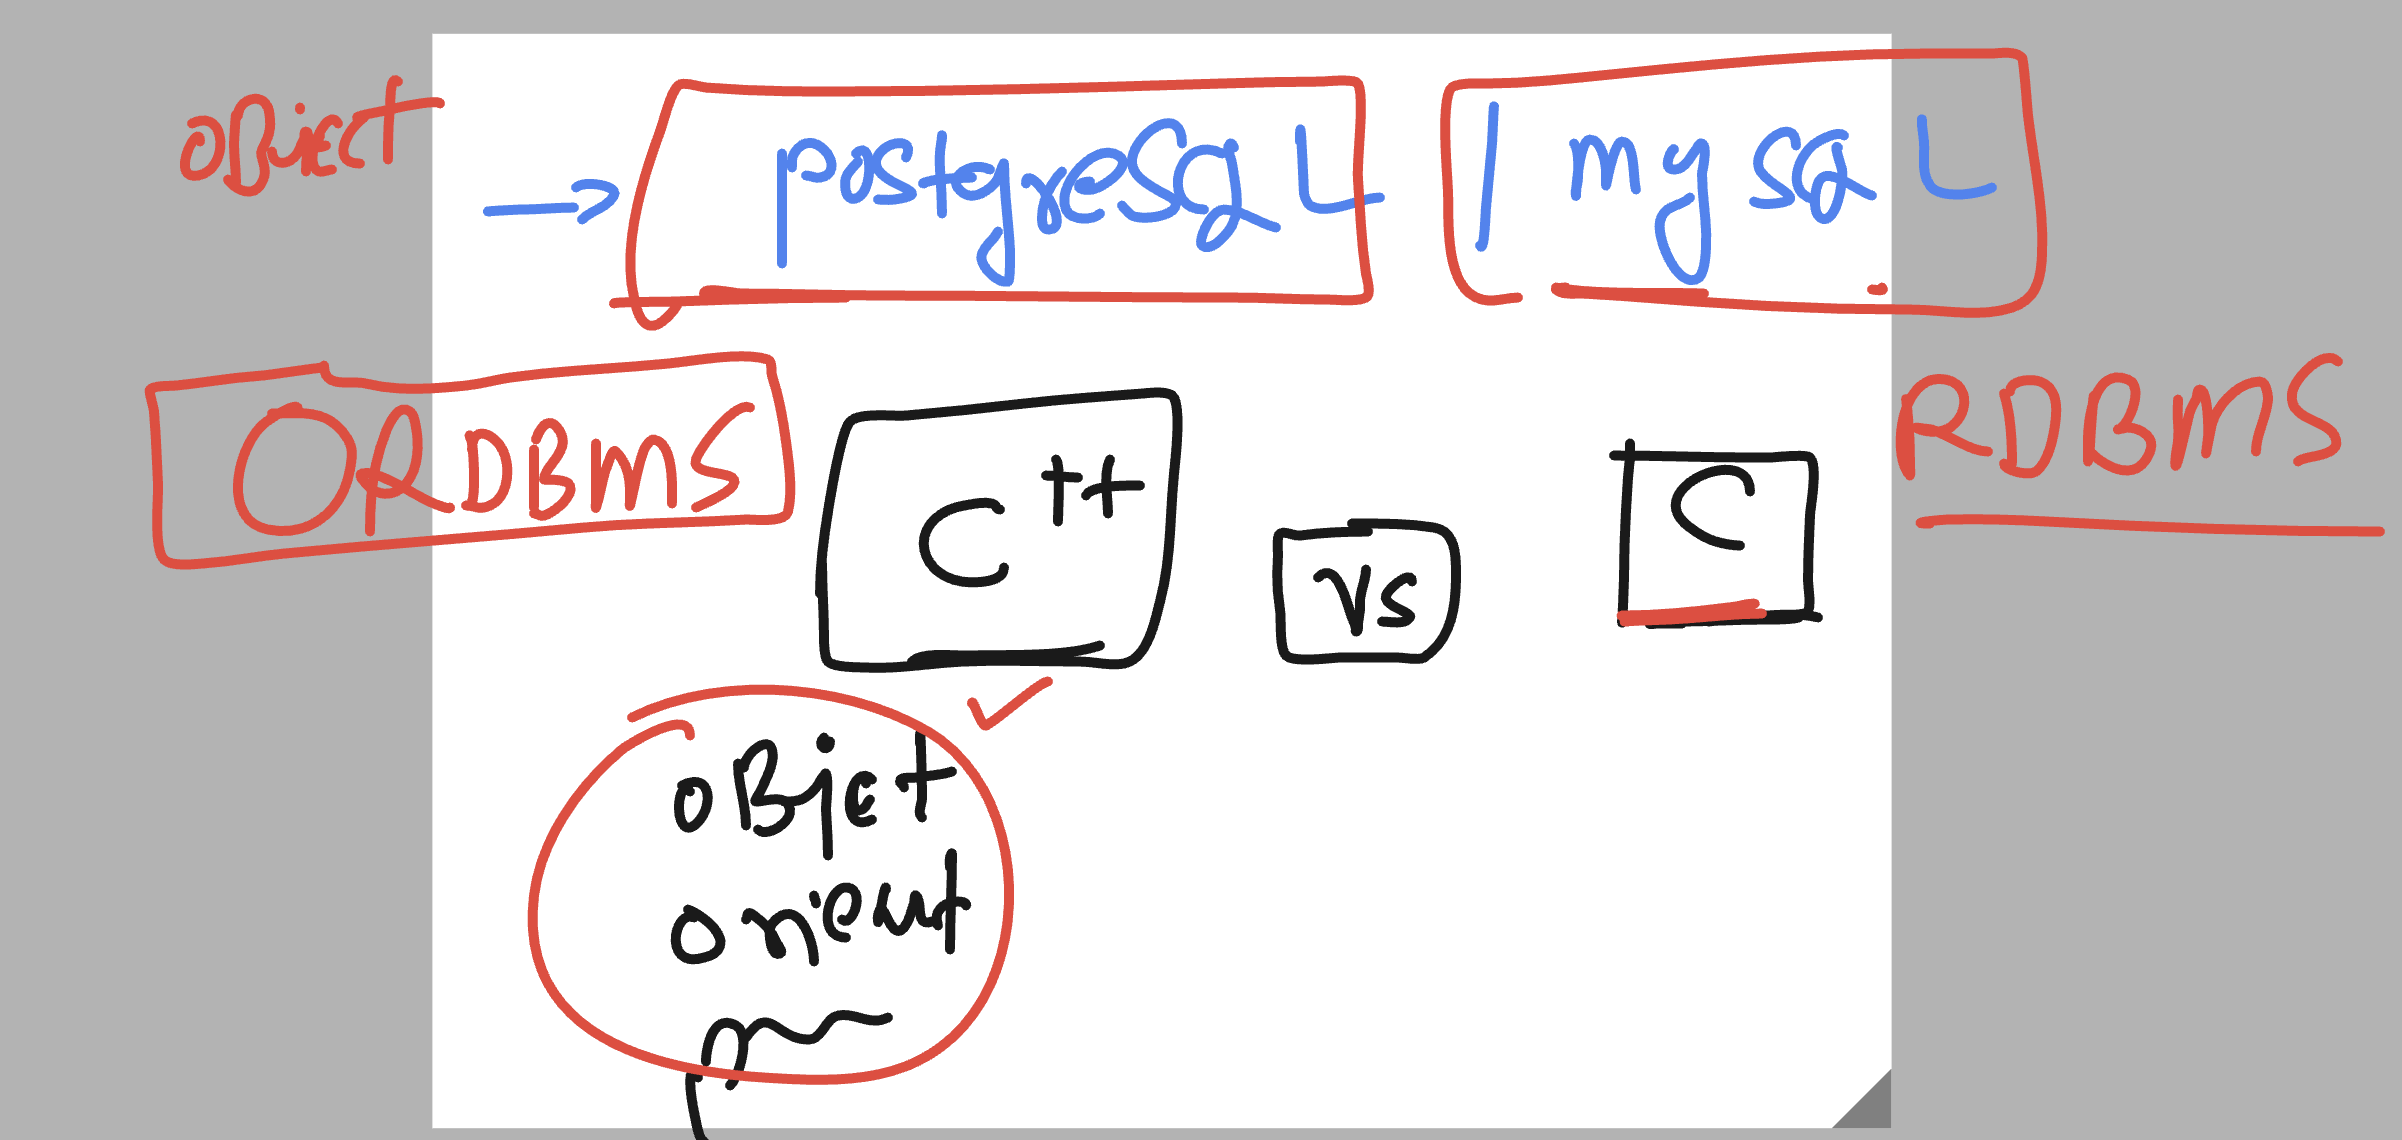 object
→ PostgreSQL | mySQL
ORDBMS
RDBMS
C++ vs C
objet
orient